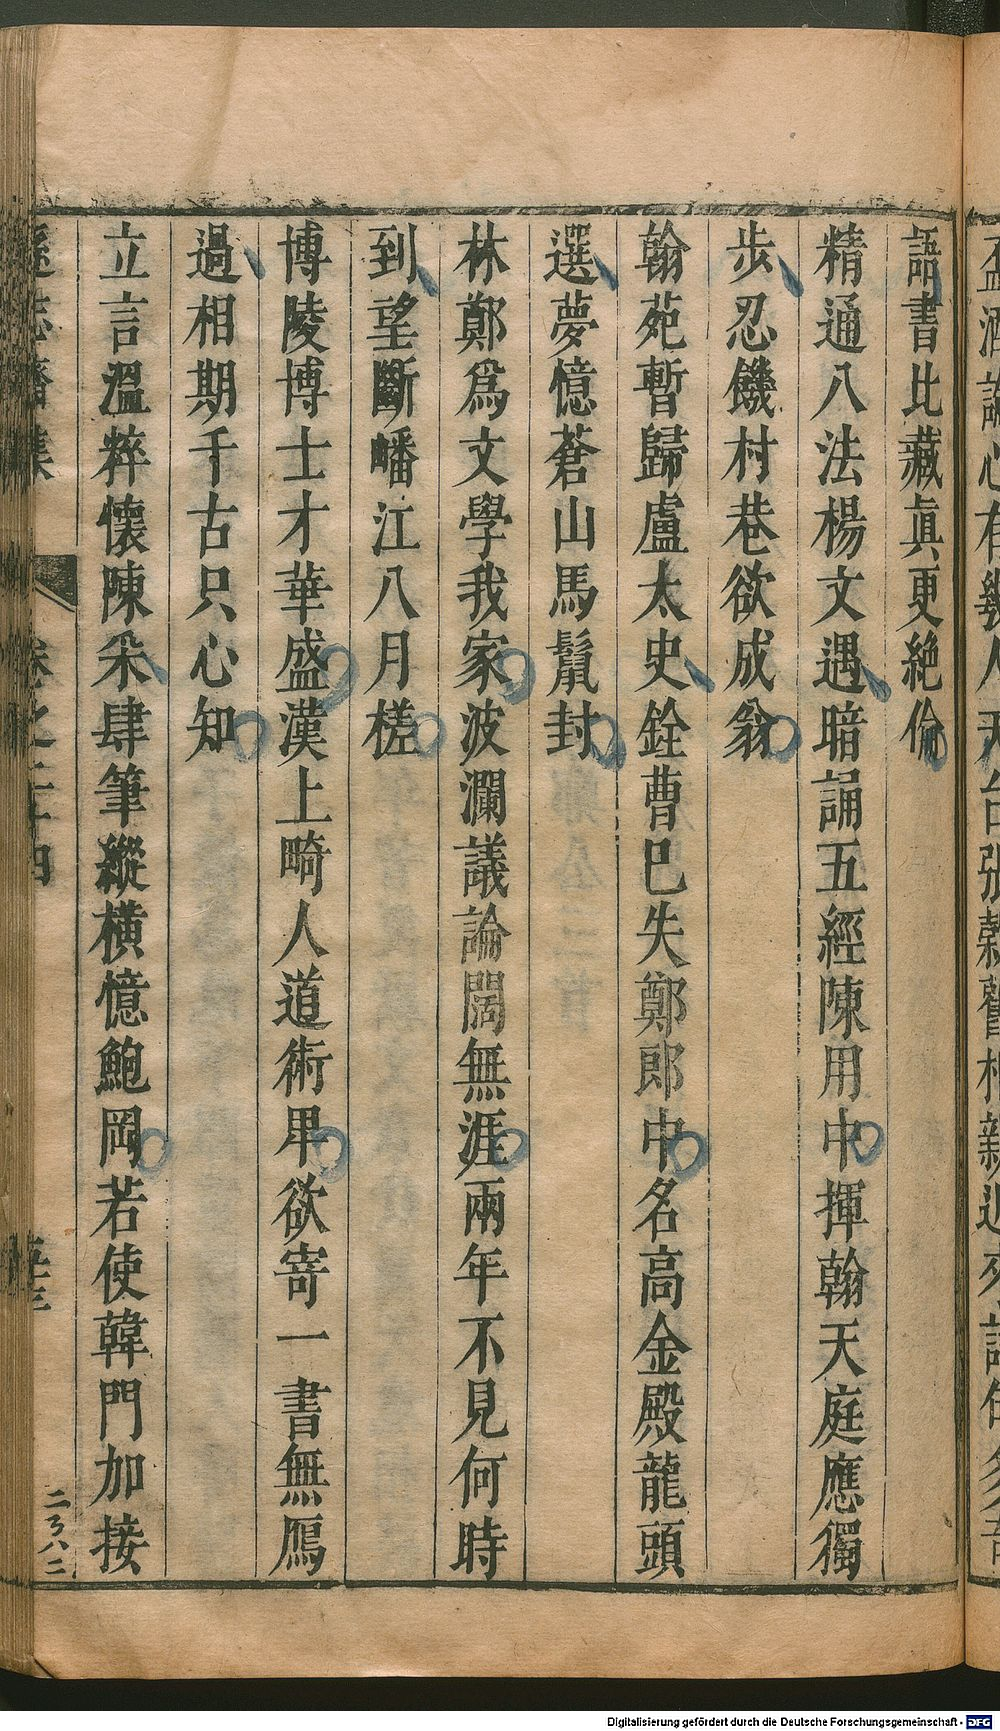 語書比藏眞更絕倫
精通八法楊文遇暗誦五經陳用中揮翰天庭應獨
步忍饑村巷欲成翁
翰苑暫歸盧太史銓曹已失鄭郎中名高金殿龍頭
選夢憶蒼山馬鬛封
林鄭爲文學我家波瀾議論闊無涯兩年不見何時
到望斷皤江八月槎
博陵博士才華盛漢上畸人道術甲欲寄一書無鴈
過相期千古只心知
立言溫粹懷陳朵肆筆縱橫憶鮑岡若使韓門加接
卷之二十四
Digitalisierung gefördert durch die Deutsche Forschungsgemeinschaft - DFG